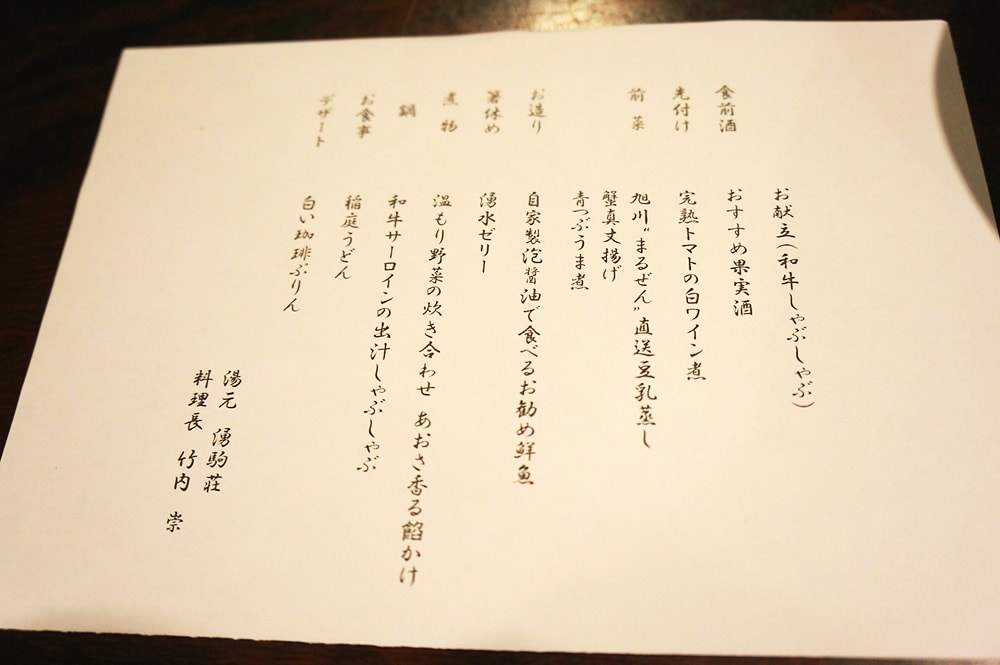 お献立(和牛しゃぶしゃぶ)
食前酒 おすすめ果実酒
先付け 完熟トマトの白ワイン煮
前菜 旭川“まるぜん”直送豆乳蒸し
蟹真丈揚げ
青つぶうま煮
お造り 自家製泡醬油で食べるお勧め鮮魚
箸休め 湧水ゼリー
煮物 温もり野菜の炊き合わせ あおさ香る餡かけ
鍋 和牛サーロインの出汁しゃぶしゃぶ
お食事 稲庭うどん
デザート 白い珈琲ぷりん
湯元 湧駒荘
料理長 竹内 崇